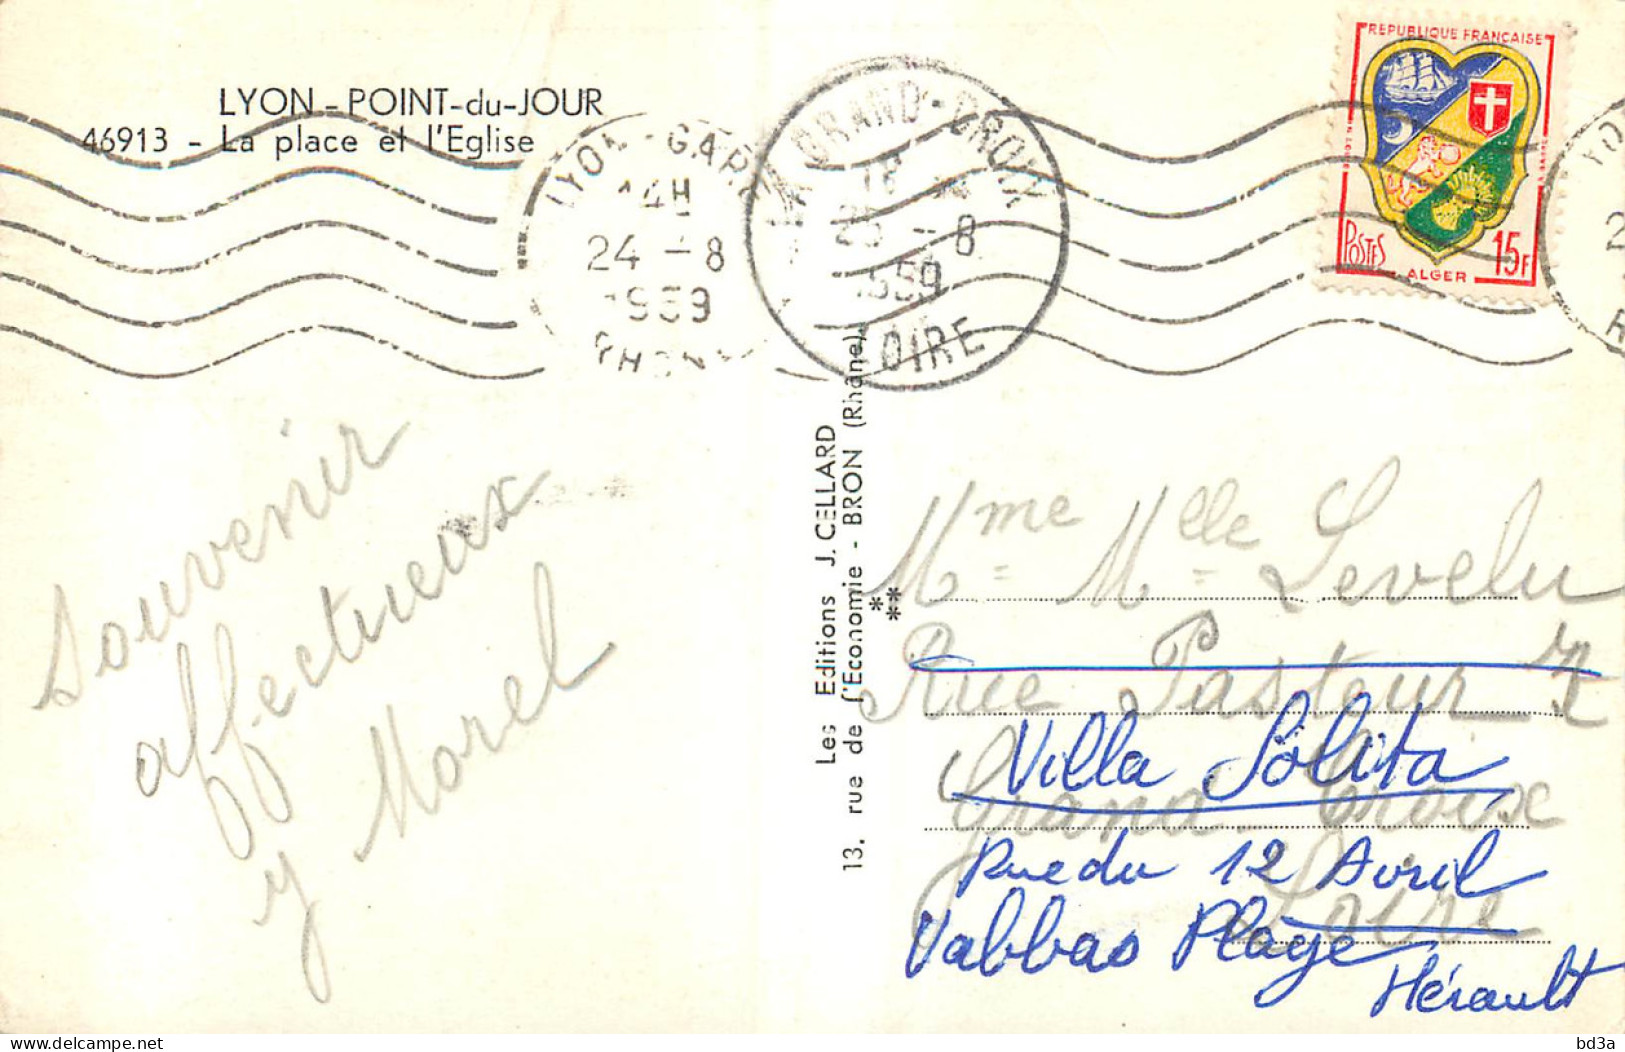 LYON - POINT-du-JOUR
46913 - La place et l'Eglise
REPUBLIQUE FRANÇAISE
POSTES
15F
ALGER
LYON - GARE
14H
24 - 8
1959
RHONE
LA GRAND-CROIX
18
25 - 8
1959
LOIRE
Souvenir
affectueux
y Morel
Les Editions J. CELLARD
13, rue de l'Economie - BRON (Rhône)
Mme Mlle Levelu
Rue Pasteur
Grand-Croix
Loire
Villa Lolita
Rue du 12 Avril
Vabbas Plage
Hérault
delcampe.net
bd3a